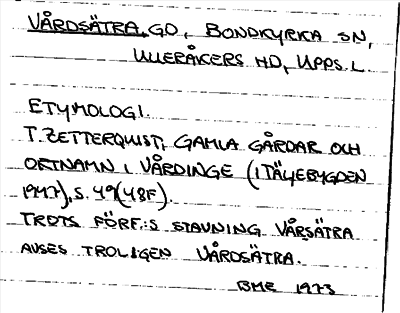 VÅRDSÄTRA, GD, BONDKYRKA SN,
ULLERÅKERS HD, UPPS. L.
ETYMOLOGI.
T. ZETTERQUIST, GAMLA GÅRDAR OCH
ORTNAMN I VÅRDINGE (I TÄLJEBYGDEN
1947), S. 49(48F).
TROTS FÖRF:S STAVNING VÅRSÄTRA
AVSES TROLIGEN VÅRDSÄTRA.
BME 1973